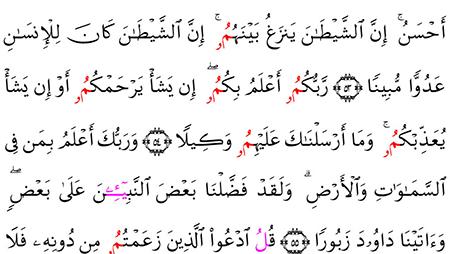 أَحْسَنُۚ إِنَّ ٱلشَّيْطَٰنَ يَنزَغُ بَيْنَهُمُۥٓۚ إِنَّ ٱلشَّيْطَٰنَ كَانَ لِلْإِنسَٰنِ
عَدُوًّا مُّبِينًا ۝٥٣ رَّبُّكُمُۥٓ أَعْلَمُ بِكُمُۥٓۖ إِن يَشَأْ يَرْحَمْكُمُۥٓ أَوْ إِن يَشَأْ
يُعَذِّبْكُمُۥۚ وَمَآ أَرْسَلْنَٰكَ عَلَيْهِمُۥ وَكِيلًا ۝٥٤ وَرَبُّكَ أَعْلَمُ بِمَن فِى
ٱلسَّمَٰوَٰتِ وَٱلْأَرْضِۗ وَلَقَدْ فَضَّلْنَا بَعْضَ ٱلنَّبِيٓـِٔـنَ عَلَىٰ بَعْضٍۖ
وَءَاتَيْنَا دَاوُۥدَ زَبُورًا ۝٥٥ قُلُ ٱدْعُوا۟ ٱلَّذِينَ زَعَمْتُمُۥ مِن دُونِهِۦ فَلَا